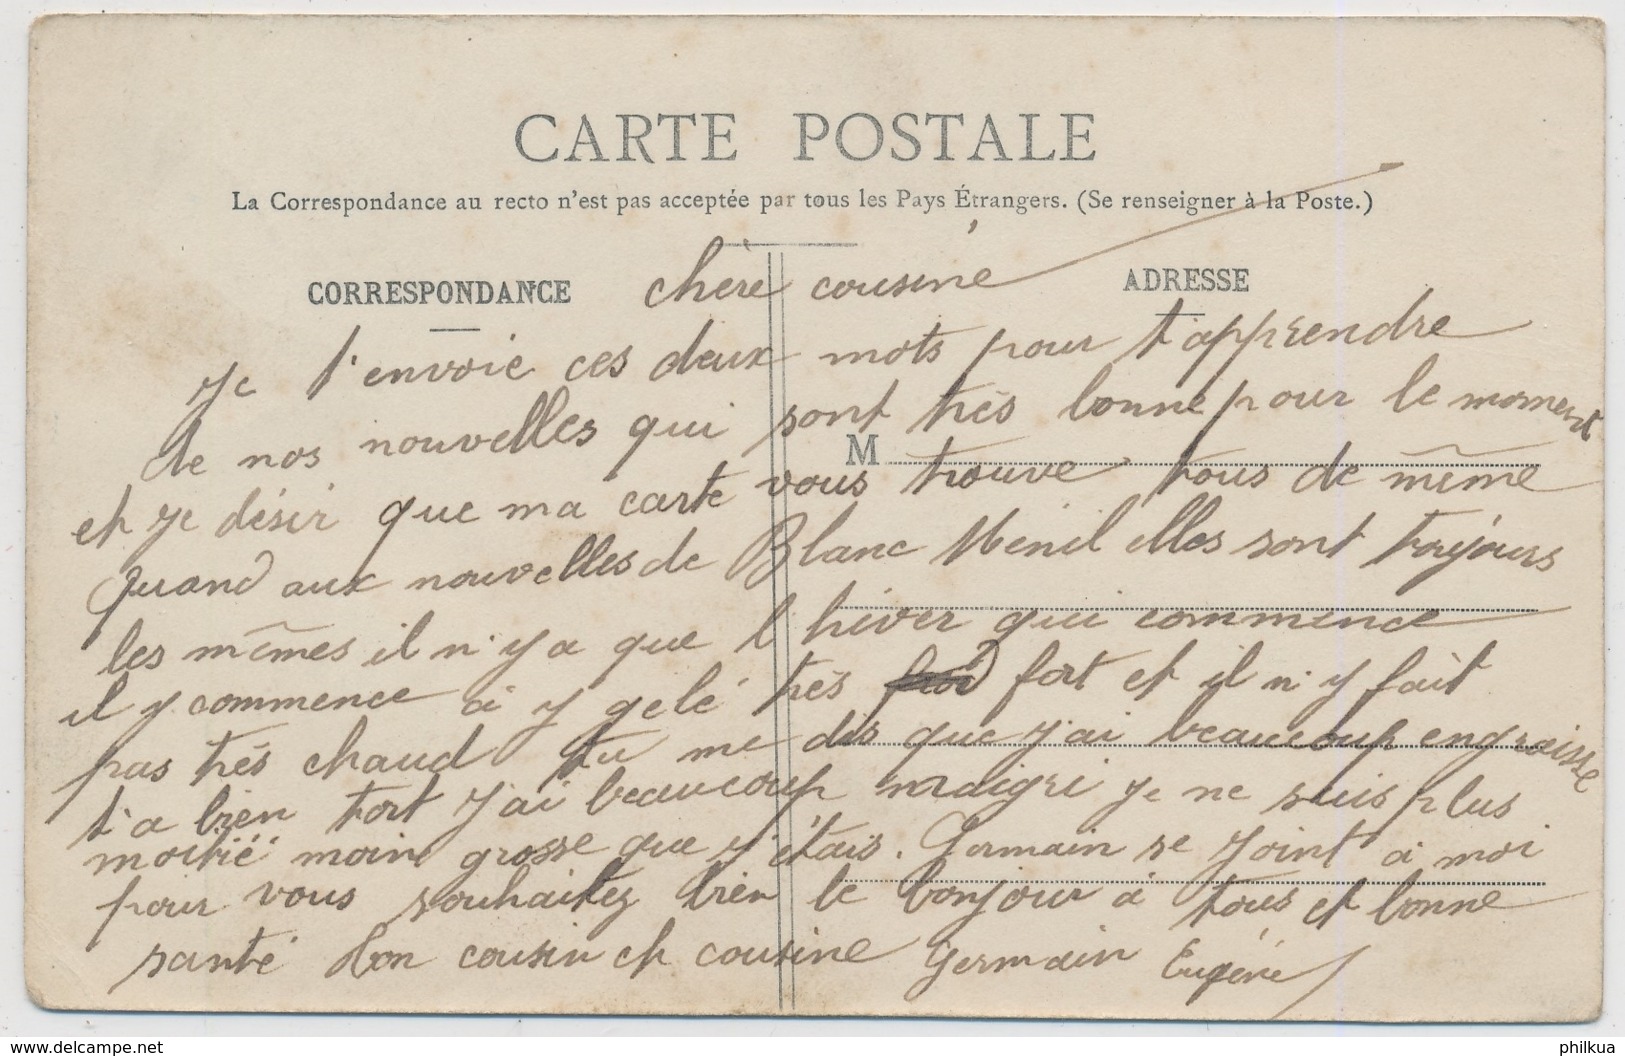 CARTE POSTALE
La Correspondance au recto n'est pas acceptée par tous les Pays Étrangers. (Se renseigner à la Poste.)
CORRESPONDANCE
ADRESSE
chère cousine
Je t'envoie ces deux mots pour t'apprendre
de nos nouvelles qui sont très bonne pour le moment
M
et je désir que ma carte vous trouve tous de même
Quand aux nouvelles de Blanc Menil elles sont toujours
les mêmes il n'y a que l'hiver qui commence
il y commence à y gelé très fort et il n'y fait
pas très chaud tu me dis que j'ai beaucoup engraisse
t'a bien tort j'ai beaucoup maigri je ne suis plus
moitié moin grosse que j'étais. Germain se joint à moi
pour vous souhaitez bien le bonjour à tous et bonne
santé ton cousin et cousine Germain Eugénie
delcampe.net
philkua